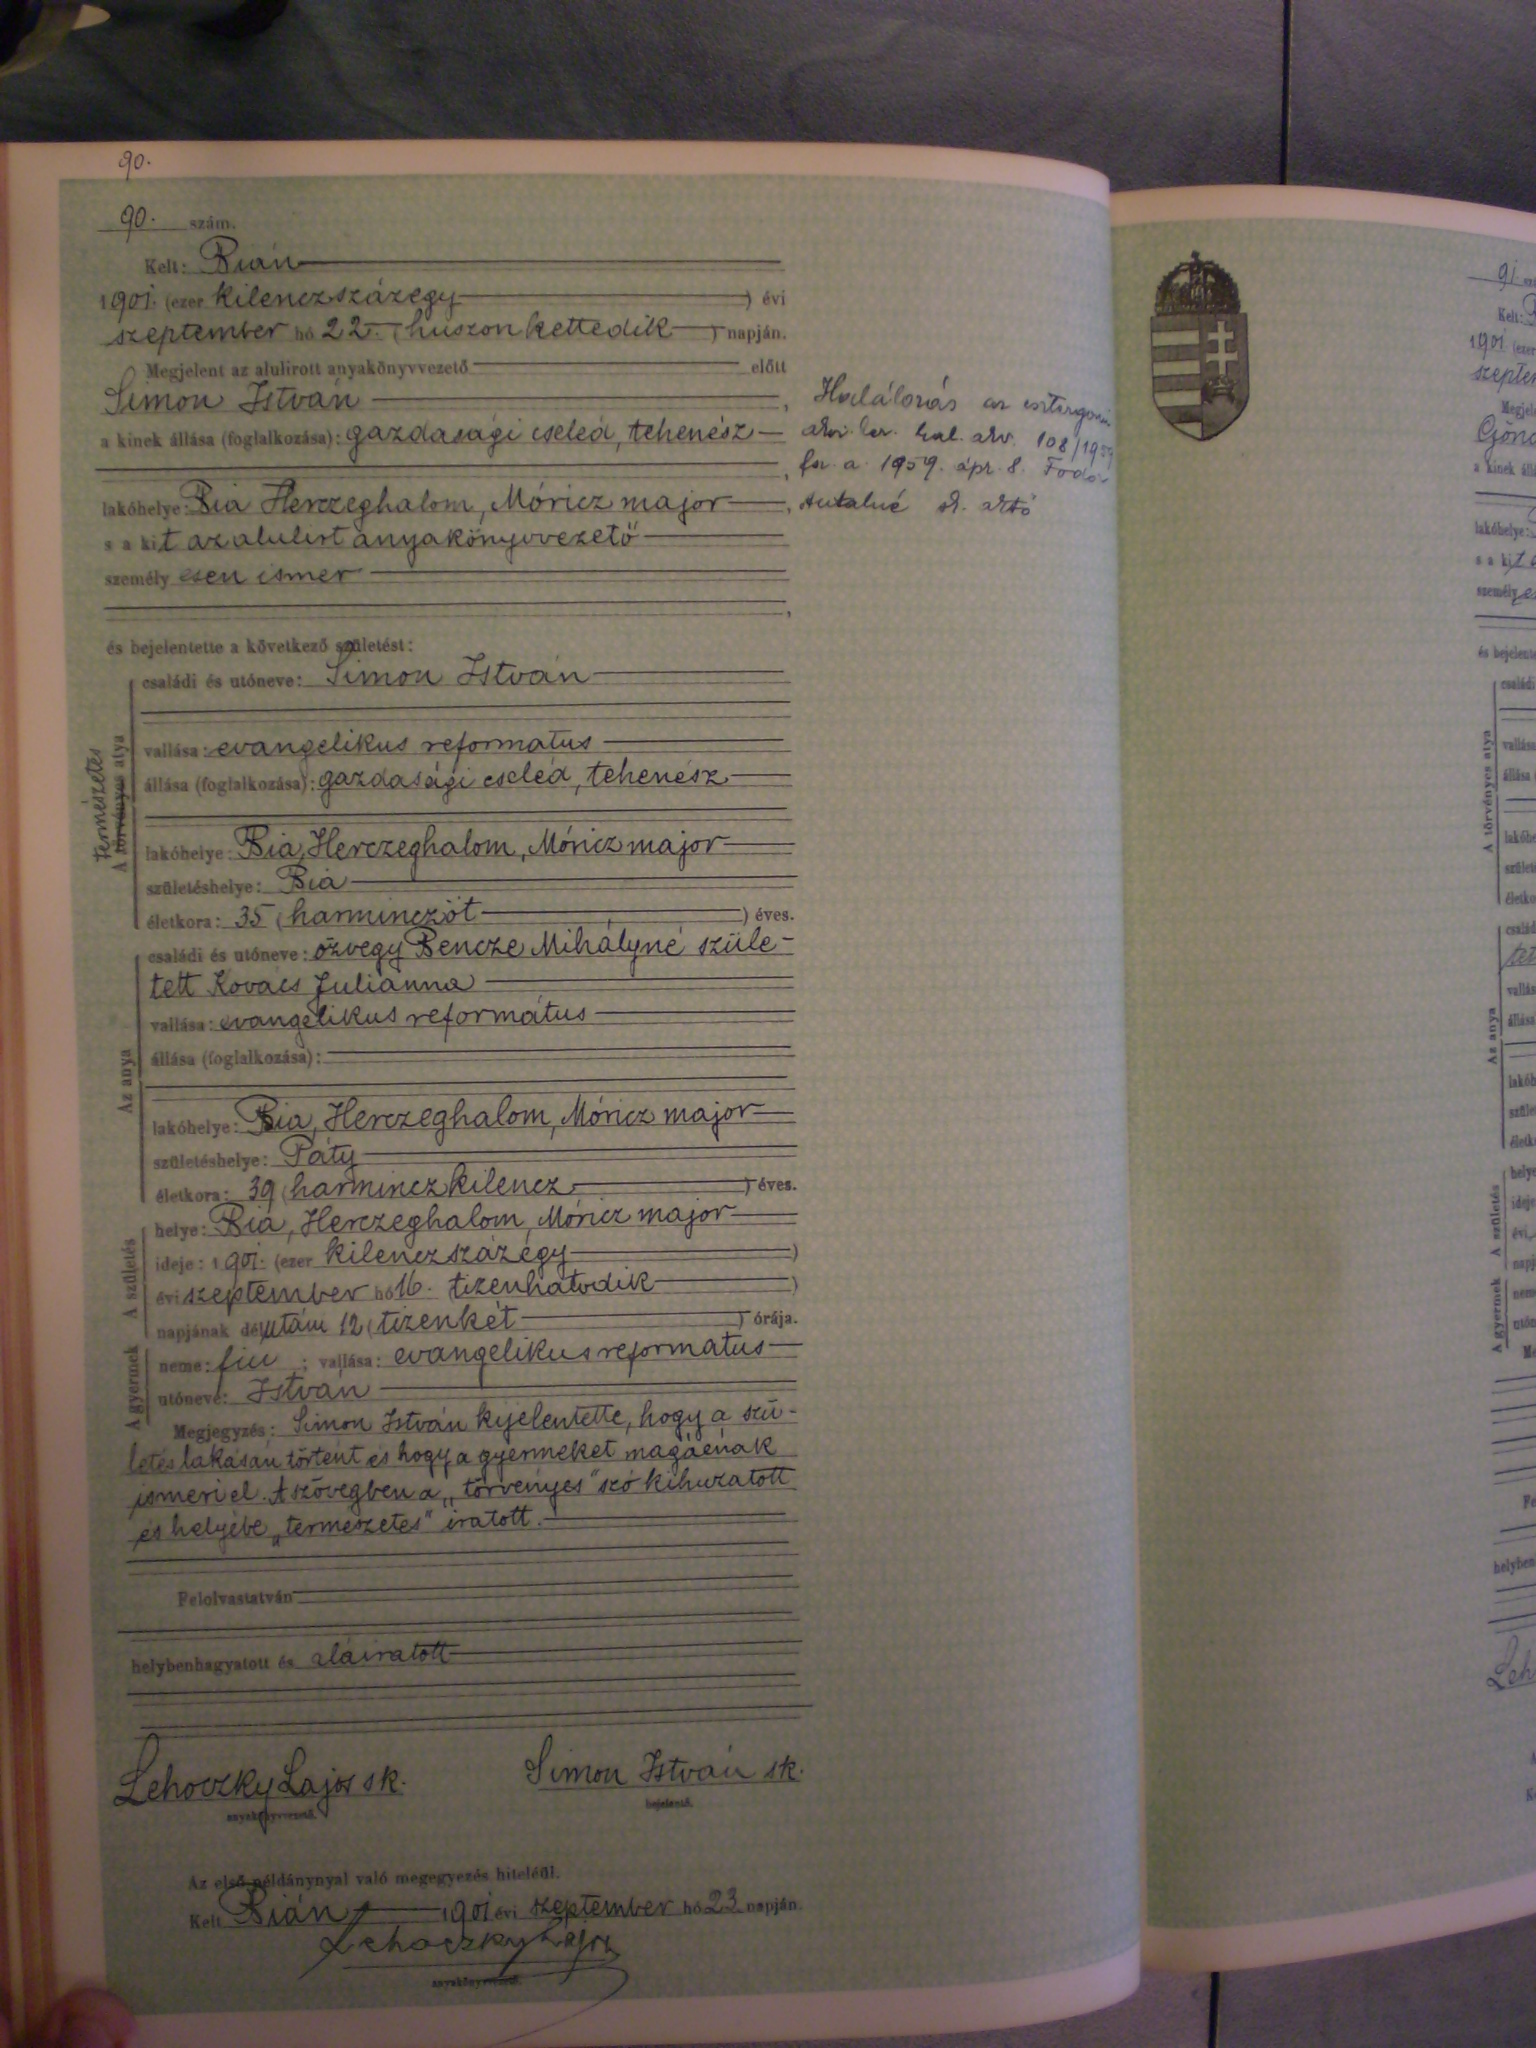 90.
90. szám.
Kelt: Bián
1901. (ezer kilenczszázegy) évi
szeptember hó 22. (huszonkettedik) napján.
Megjelent az alulirott anyakönyvvezető előtt
Simon István,
a kinek állása (foglalkozása): gazdasági cseléd, tehenész
,
lakóhelye: Bia Herczeghalom, Móricz major,
s a kit az alulirt anyakönyvvezető
személyesen ismer
,
és bejelentette a következő születést:
természetes
A törvényes atya
családi és utóneve: Simon István
vallása: evangelikus reformatus
állása (foglalkozása): gazdasági cseléd, tehenész
lakóhelye: Bia, Herczeghalom, Móricz major
születéshelye: Bia
életkora: 35 (harminczöt) éves.
Az anya
családi és utóneve: özvegy Bencze Mihályné szüle-
tett Kovács Julianna
vallása: evangelikus református
állása (foglalkozása):
lakóhelye: Bia, Herczeghalom, Móricz major
születéshelye: Páty
életkora: 39 (harminczkilencz) éves.
A születés
helye: Bia, Herczeghalom, Móricz major
ideje: 1901. (ezer kilenczszázegy)
évi szeptember hó 16. tizenhatodik)
napjának délután 12 (tizenkét) órája.
A gyermek
neme: fiu ; vallása: evangelikus reformatus
utóneve: István
Megjegyzés: Simon István kijelentette, hogy a szü-
letés lakásán történt és hogy a gyermeket magáénak
ismeri el. A szövegben a „törvényes" szó kihuzatott
és helyébe „természetes" iratott.
Felolvastatván
helybenhagyatott és aláiratott
Lehoczky Lajos sk. Simon István sk.
anyakönyvvezető. bejelentő.
Az első példánynyal való megegyezés hiteléül.
Kelt Bián 1901 évi szeptember hó 23 napján.
Lehoczky Lajos
anyakönyvvezető.
Halálozás az esztergomi
hal. 108/1959
a. 1959. ápr. 8. Fodor
Antalné
91
Kelt:
1901 (ezer
lakóhelye:
s a kit
személyes
A törvényes atya
Az anya
A születés
A gyermek